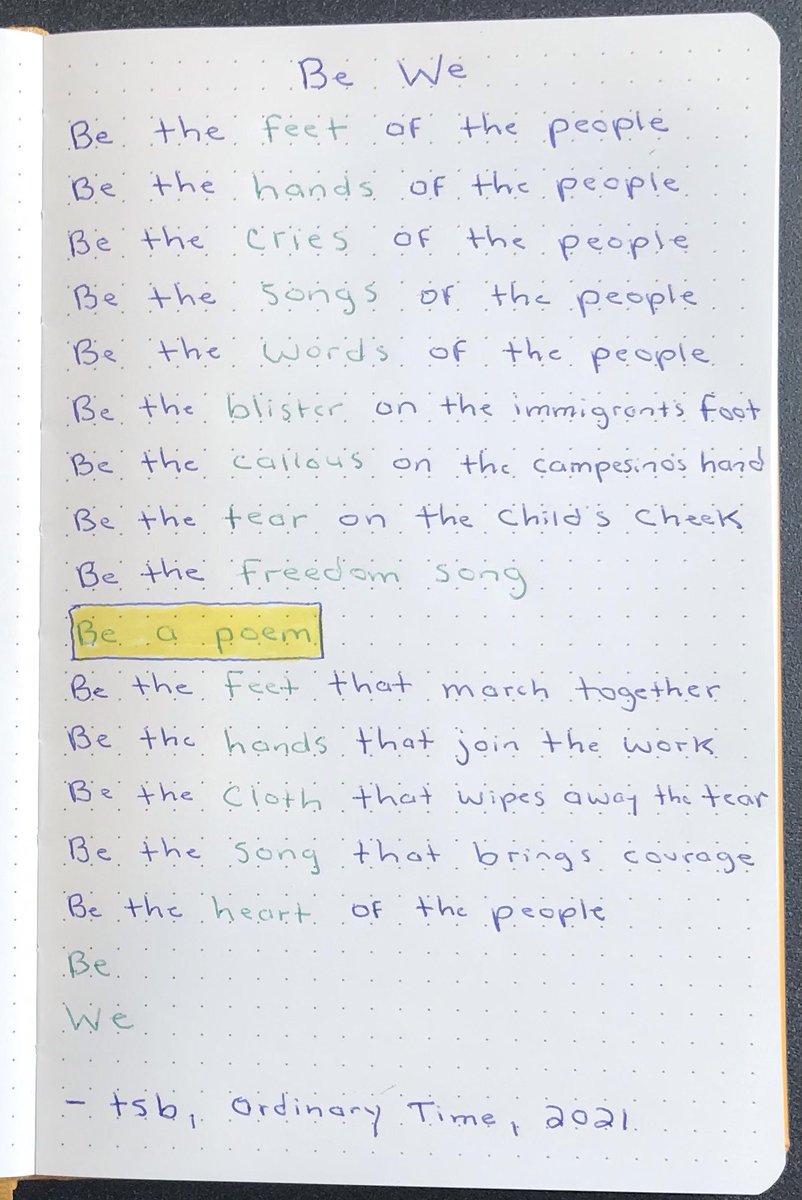 Be We
Be the feet of the people
Be the hands of the people
Be the cries of the people
Be the songs of the people
Be the words of the people
Be the blister on the immigrants foot
Be the callous on the campesino's hand
Be the tear on the child's cheek
Be the freedom song
Be a poem
Be the feet that march together
Be the hands that join the work
Be the cloth that wipes away the tear
Be the song that brings courage
Be the heart of the people
Be
We
- tsb, Ordinary Time, 2021